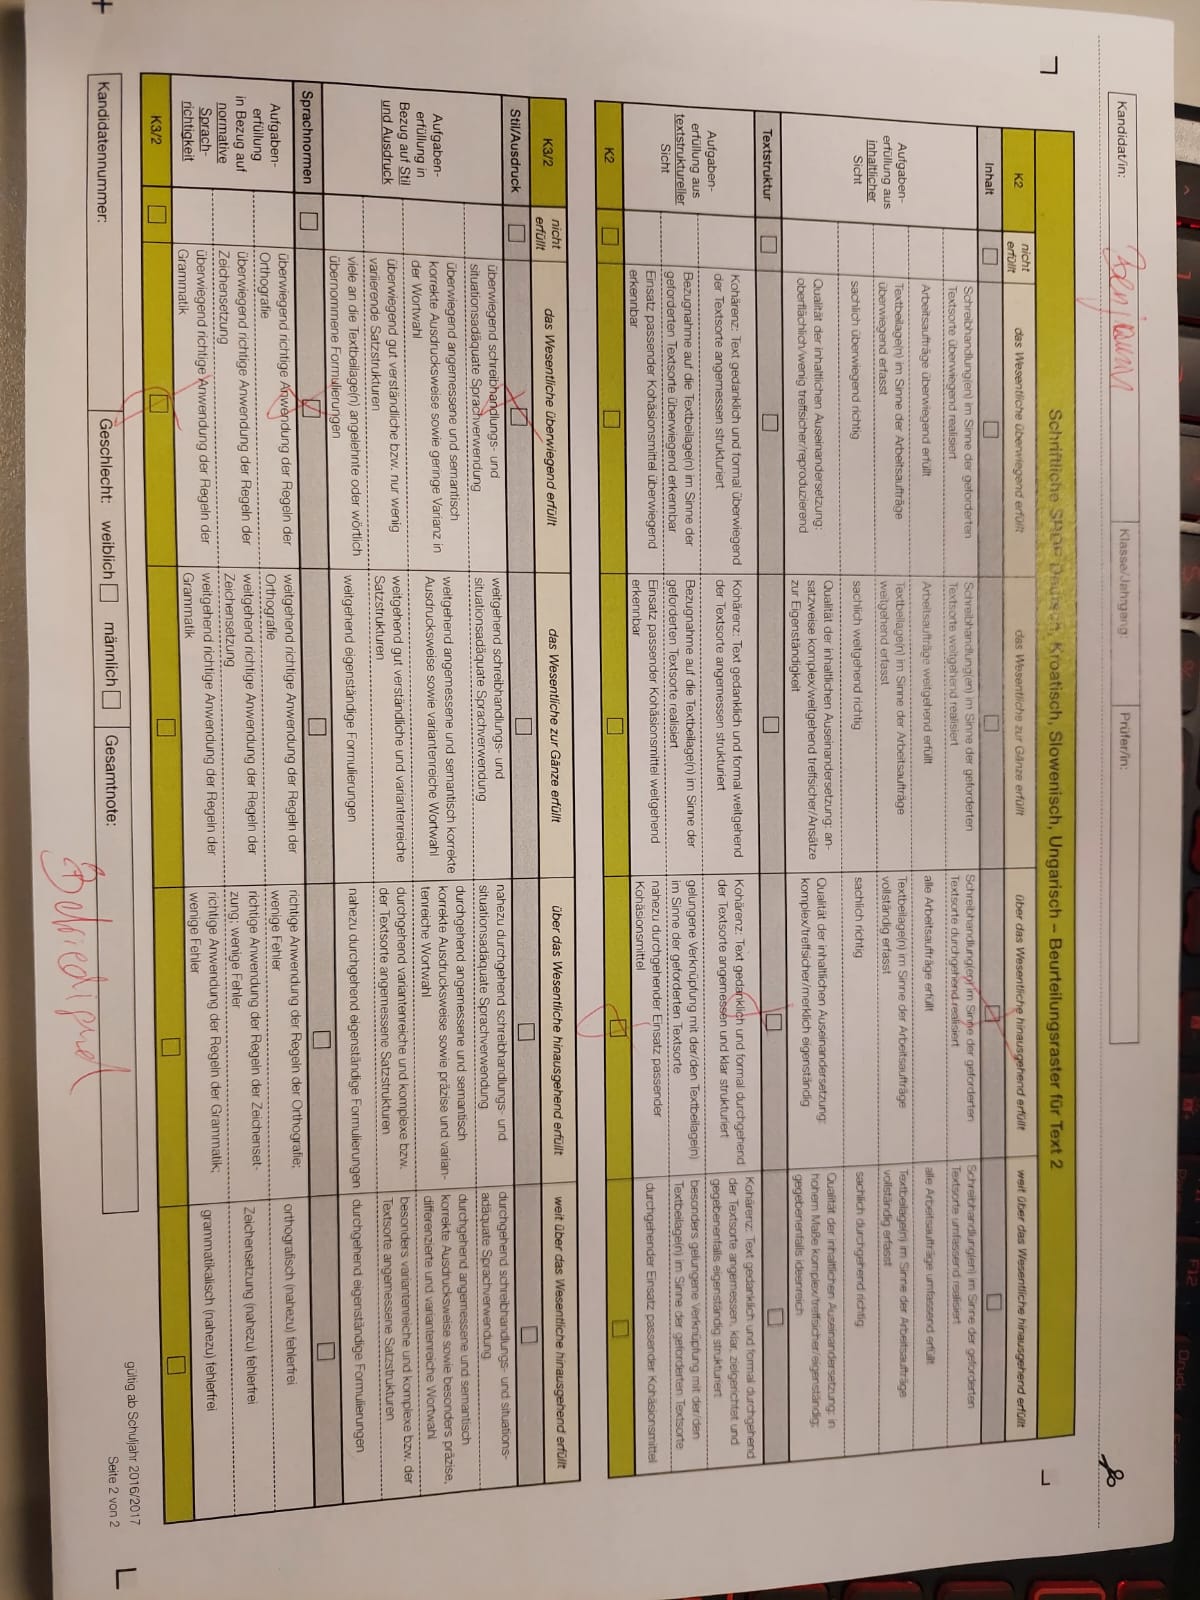 Kandidat/in: Benjamin Klasse/Jahrgang: Prüfer/in:
Schriftliche SRDP Deutsch, Kroatisch, Slowenisch, Ungarisch – Beurteilungsraster für Text 2
K2 nicht erfüllt das Wesentliche überwiegend erfüllt das Wesentliche zur Gänze erfüllt über das Wesentliche hinausgehend erfüllt weit über das Wesentliche hinausgehend erfüllt
Inhalt
Aufgaben-
erfüllung aus
inhaltlicher
Sicht
Schreibhandlung(en) im Sinne der geforderten
Textsorte überwiegend realisiert
Schreibhandlung(en) im Sinne der geforderten
Textsorte weitgehend realisiert
Schreibhandlung(en) im Sinne der geforderten
Textsorte durchgehend realisiert
Schreibhandlung(en) im Sinne der geforderten
Textsorte umfassend realisiert
Arbeitsaufträge überwiegend erfüllt
Arbeitsaufträge weitgehend erfüllt
alle Arbeitsaufträge erfüllt
alle Arbeitsaufträge umfassend erfüllt
Textbeilage(n) im Sinne der Arbeitsaufträge
überwiegend erfasst
Textbeilage(n) im Sinne der Arbeitsaufträge
weitgehend erfasst
Textbeilage(n) im Sinne der Arbeitsaufträge
vollständig erfasst
Textbeilage(n) im Sinne der Arbeitsaufträge
vollständig erfasst
sachlich überwiegend richtig
sachlich weitgehend richtig
sachlich richtig
sachlich durchgehend richtig
Qualität der inhaltlichen Auseinandersetzung:
oberflächlich/wenig treffsicher/reproduzierend
Qualität der inhaltlichen Auseinandersetzung: an-
satzweise komplex/weitgehend treffsicher/Ansätze
zur Eigenständigkeit
Qualität der inhaltlichen Auseinandersetzung:
komplex/treffsicher/merklich eigenständig
Qualität der inhaltlichen Auseinandersetzung: in
hohem Maße komplex/treffsicher/eigenständig;
gegebenenfalls ideenreich
Textstruktur
Aufgaben-
erfüllung aus
textstruktureller
Sicht
Kohärenz: Text gedanklich und formal überwiegend
der Textsorte angemessen strukturiert
Kohärenz: Text gedanklich und formal weitgehend
der Textsorte angemessen strukturiert
Kohärenz: Text gedanklich und formal durchgehend
der Textsorte angemessen und klar strukturiert
Kohärenz: Text gedanklich und formal durchgehend
der Textsorte angemessen, klar, zielgerichtet und
gegebenenfalls eigenständig strukturiert
Bezugnahme auf die Textbeilage(n) im Sinne der
geforderten Textsorte überwiegend erkennbar
Bezugnahme auf die Textbeilage(n) im Sinne der
geforderten Textsorte realisiert
gelungene Verknüpfung mit der/den Textbeilage(n)
im Sinne der geforderten Textsorte
besonders gelungene Verknüpfung mit der/den
Textbeilage(n) im Sinne der geforderten Textsorte
Einsatz passender Kohäsionsmittel überwiegend
erkennbar
Einsatz passender Kohäsionsmittel weitgehend
erkennbar
nahezu durchgehender Einsatz passender
Kohäsionsmittel
durchgehender Einsatz passender Kohäsionsmittel
K2
K3/2 nicht erfüllt das Wesentliche überwiegend erfüllt das Wesentliche zur Gänze erfüllt über das Wesentliche hinausgehend erfüllt weit über das Wesentliche hinausgehend erfüllt
Stil/Ausdruck
Aufgaben-
erfüllung in
Bezug auf Stil
und Ausdruck
überwiegend schreibhandlungs- und
situationsadäquate Sprachverwendung
weitgehend schreibhandlungs- und
situationsadäquate Sprachverwendung
nahezu durchgehend schreibhandlungs- und
situationsadäquate Sprachverwendung
durchgehend schreibhandlungs- und situations-
adäquate Sprachverwendung
überwiegend angemessene und semantisch
korrekte Ausdrucksweise sowie geringe Varianz in
der Wortwahl
weitgehend angemessene und semantisch korrekte
Ausdrucksweise sowie variantenreiche Wortwahl
durchgehend angemessene und semantisch
korrekte Ausdrucksweise sowie präzise und varian-
tenreiche Wortwahl
durchgehend angemessene und semantisch
korrekte Ausdrucksweise sowie besonders präzise,
differenzierte und variantenreiche Wortwahl
überwiegend gut verständliche bzw. nur wenig
variierende Satzstrukturen
weitgehend gut verständliche und variantenreiche
Satzstrukturen
durchgehend variantenreiche und komplexe bzw.
der Textsorte angemessene Satzstrukturen
besonders variantenreiche und komplexe bzw. der
Textsorte angemessene Satzstrukturen
viele an die Textbeilage(n) angelehnte oder wörtlich
übernommene Formulierungen
weitgehend eigenständige Formulierungen
nahezu durchgehend eigenständige Formulierungen
durchgehend eigenständige Formulierungen
Sprachnormen
Aufgaben-
erfüllung
in Bezug auf
normative
Sprach-
richtigkeit
überwiegend richtige Anwendung der Regeln der
Orthografie
weitgehend richtige Anwendung der Regeln der
Orthografie
richtige Anwendung der Regeln der Orthografie;
wenige Fehler
orthografisch (nahezu) fehlerfrei
überwiegend richtige Anwendung der Regeln der
Zeichensetzung
weitgehend richtige Anwendung der Regeln der
Zeichensetzung
richtige Anwendung der Regeln der Zeichenset-
zung; wenige Fehler
Zeichensetzung (nahezu) fehlerfrei
überwiegend richtige Anwendung der Regeln der
Grammatik
weitgehend richtige Anwendung der Regeln der
Grammatik
richtige Anwendung der Regeln der Grammatik;
wenige Fehler
grammatikalisch (nahezu) fehlerfrei
K3/2
Kandidatennummer: Geschlecht: weiblich männlich Gesamtnote:
gültig ab Schuljahr 2016/2017
Seite 2 von 2
Befriedigend